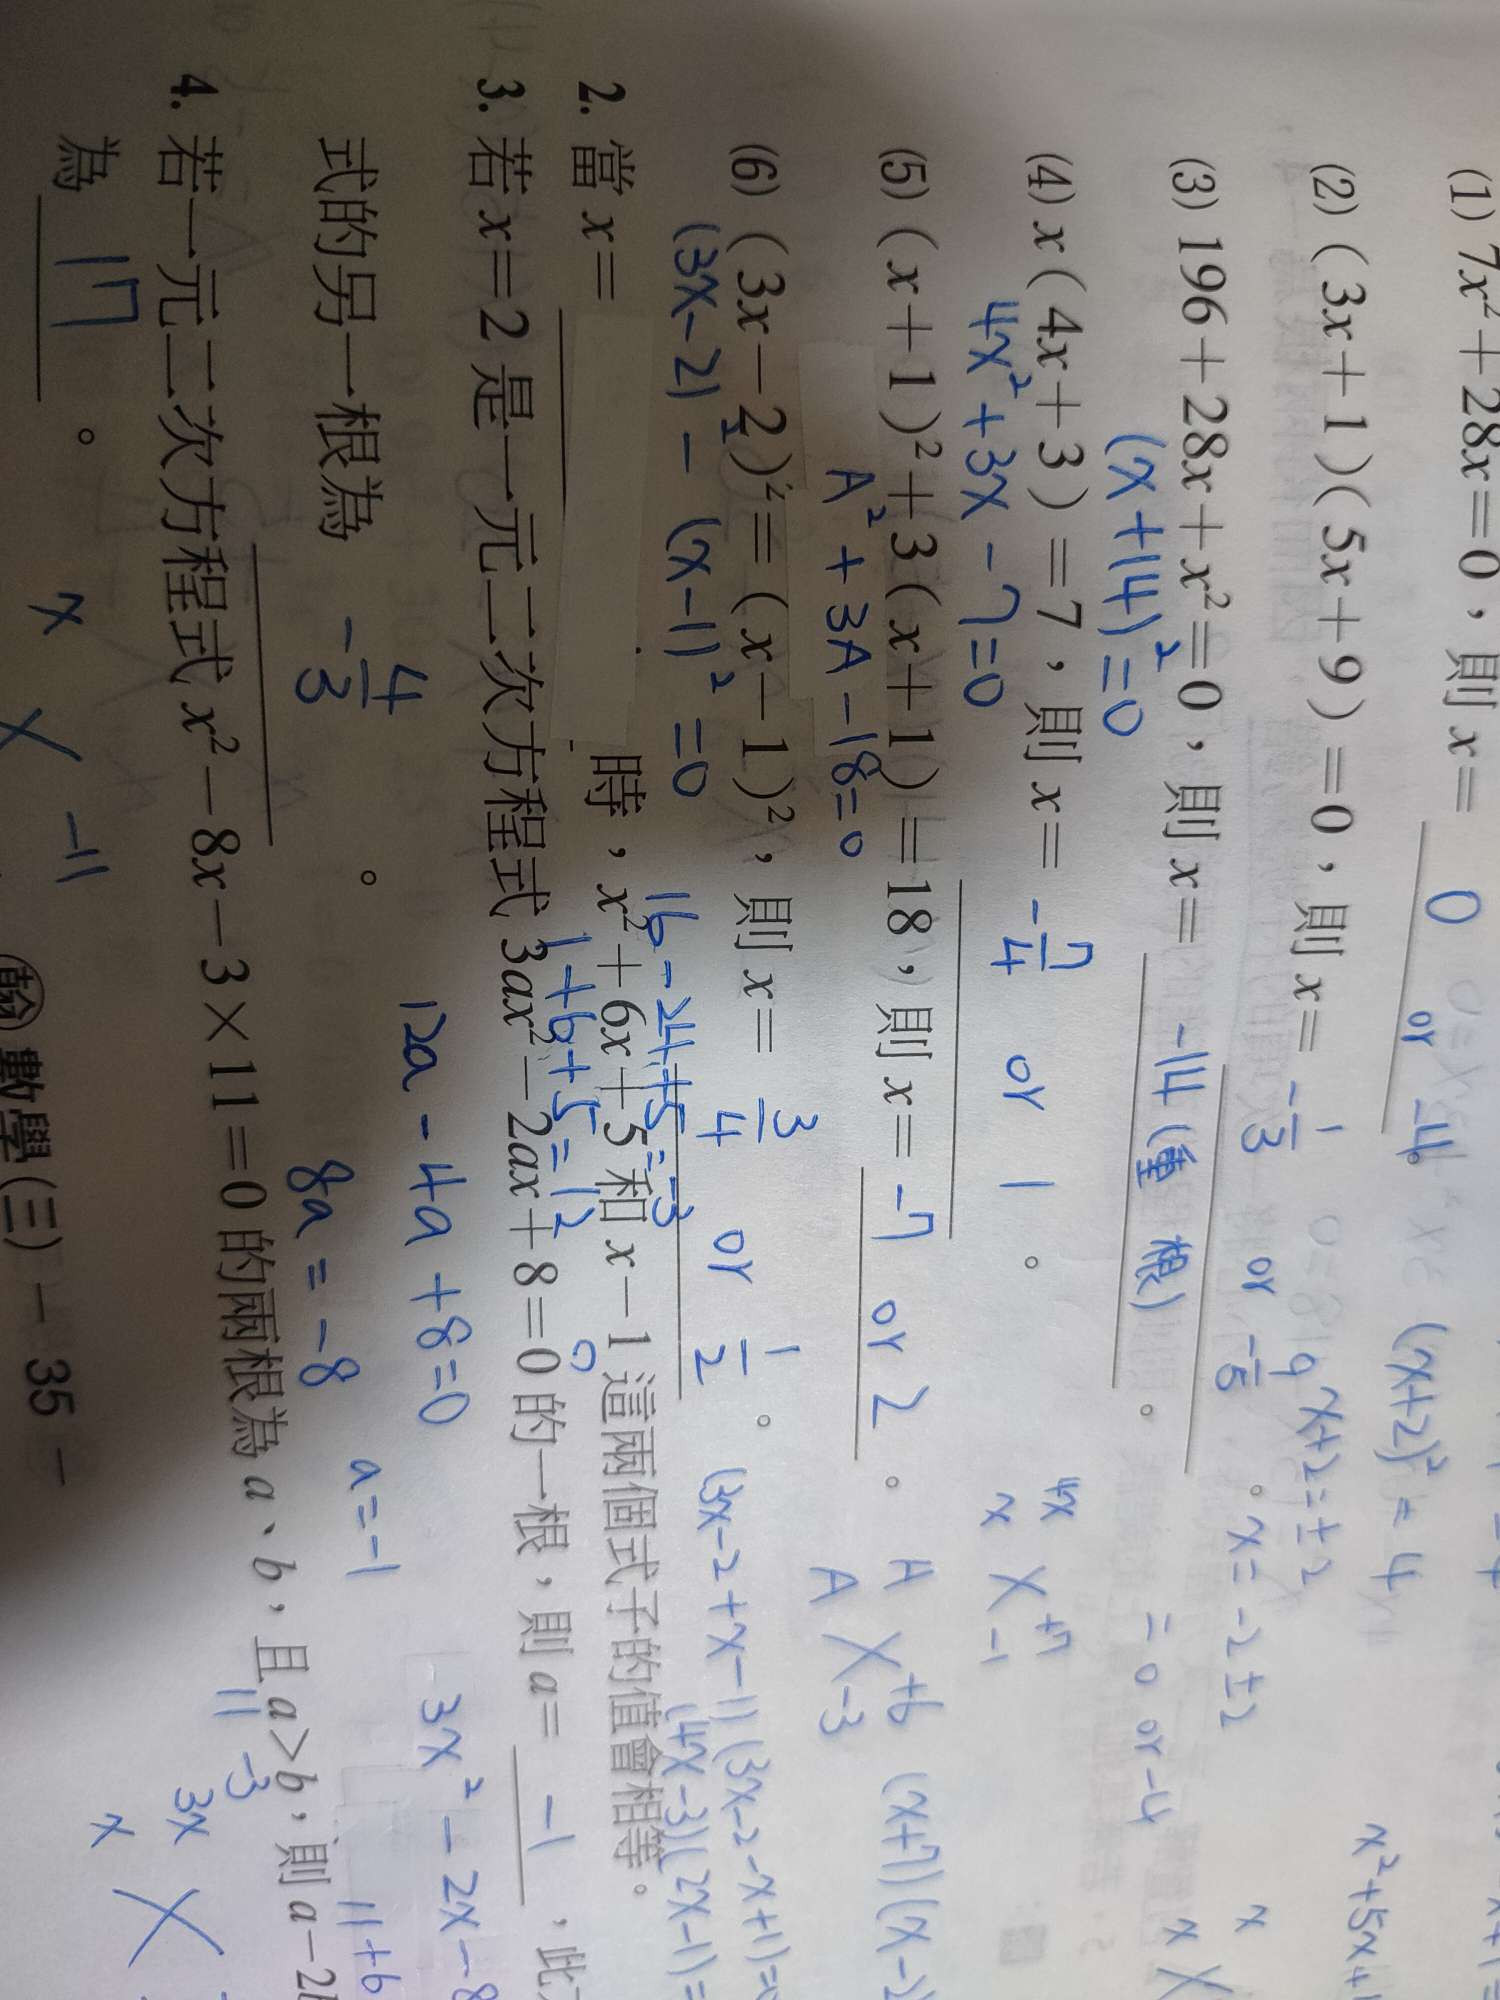 (1) 7x²+28x=0，則 x= 0 or -4。
(x+2)²=4
x+2=±2
x=-2±2
=0 or -4
(2) (3x+1)(5x+9)=0，則 x= -1/3 or -9/5。
(3) 196+28x+x²=0，則 x= -14 (重根)。
(x+14)²=0
(4) x(4x+3)=7，則 x= -7/4 or 1。
4x²+3x-7=0
4x +7
x -1
(5) (x+1)²+3(x+1)=18，則 x= -7 or 2。
A²+3A-18=0
A +6
A -3
(x+7)(x-2)
(6) (3x-2)²=(x-1)²，則 x= 3/4 or 1/2。
(3x-2)²-(x-1)²=0
(3x-2+x-1)(3x-2-x+1)=0
(4x-3)(2x-1)=
2. 當 x= 時，x²+6x+5 和 x-1 這兩個式子的值會相等。
16-24+5=-3
1+6+5=12
0
3. 若 x=2 是一元二次方程式 3ax²-2ax+8=0 的一根，則 a= -1 ，此
式的另一根為 -4/3 。
12a-4a+8=0
8a=-8
a=-1
-3x²-2x-8
4. 若一元二次方程式 x²-8x-3×11=0 的兩根為 a、b，且 a>b，則 a-2b
為 17 。
11 -3
11+6
3x
x
x -11
翰 數學(三)-35-